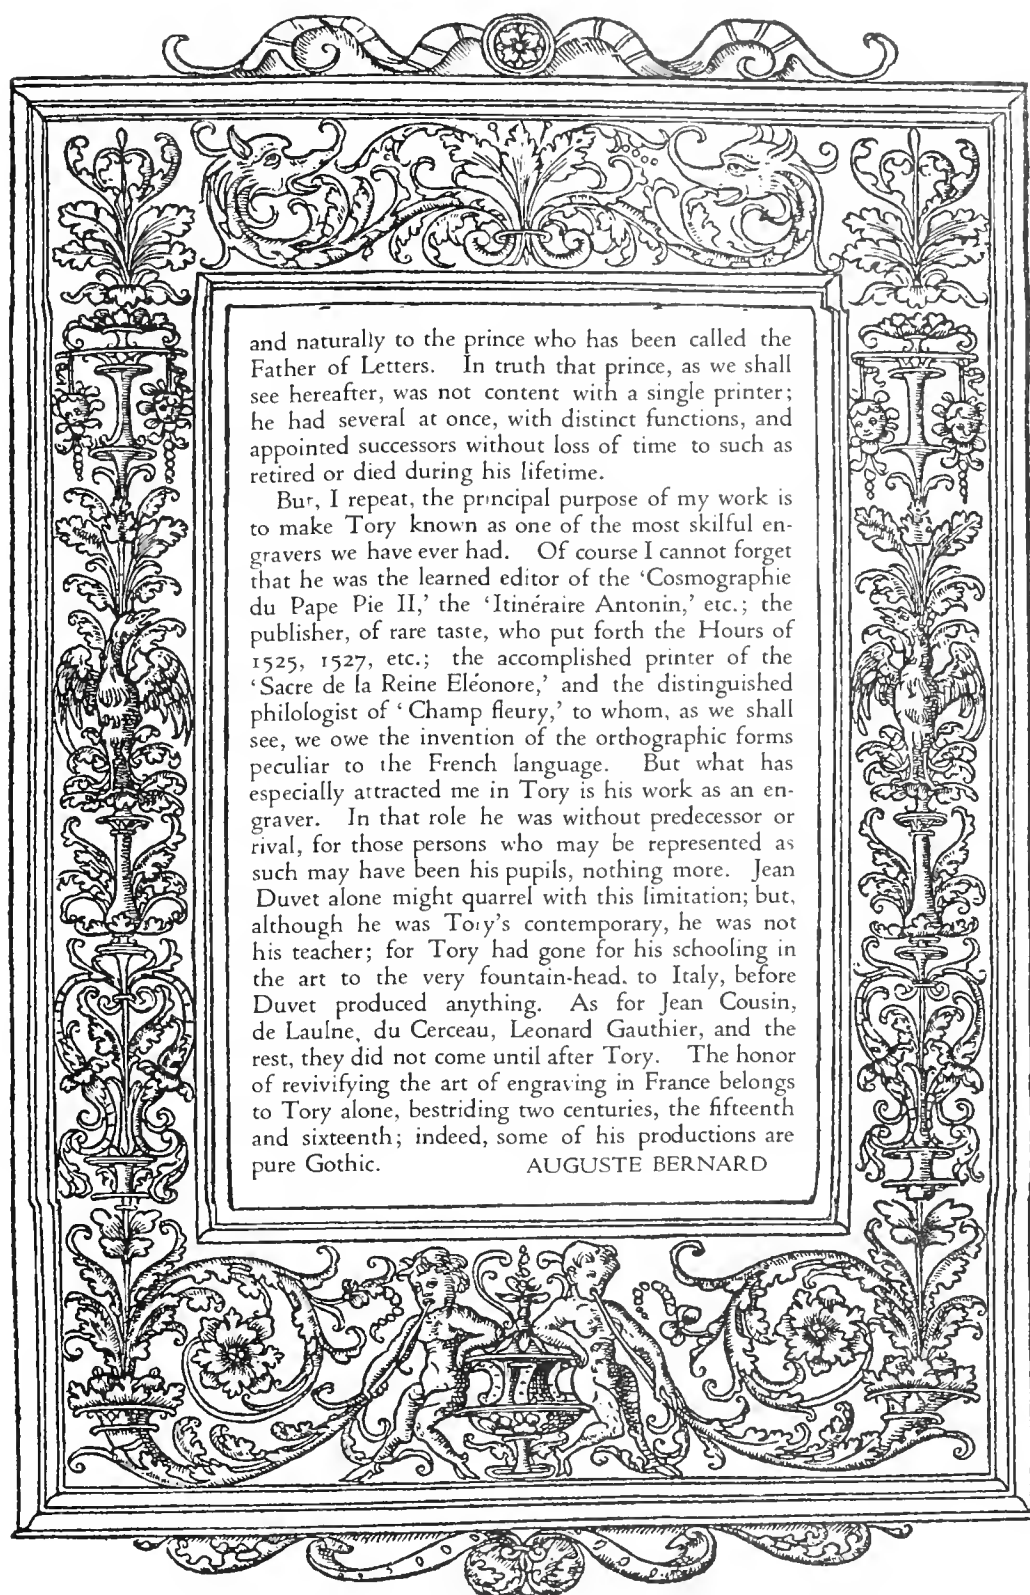 and naturally to the prince who has been called the
Father of Letters. In truth that prince, as we shall
see hereafter, was not content with a single printer;
he had several at once, with distinct functions, and
appointed successors without loss of time to such as
retired or died during his lifetime.
But, I repeat, the principal purpose of my work is
to make Tory known as one of the most skilful en-
gravers we have ever had. Of course I cannot forget
that he was the learned editor of the ‘Cosmographie
du Pape Pie II,’ the ‘Itinéraire Antonin,’ etc.; the
publisher, of rare taste, who put forth the Hours of
1525, 1527, etc.; the accomplished printer of the
‘Sacre de la Reine Eléonore,’ and the distinguished
philologist of ‘Champ fleury,’ to whom, as we shall
see, we owe the invention of the orthographic forms
peculiar to the French language. But what has
especially attracted me in Tory is his work as an en-
graver. In that role he was without predecessor or
rival, for those persons who may be represented as
such may have been his pupils, nothing more. Jean
Duvet alone might quarrel with this limitation; but,
although he was Tory’s contemporary, he was not
his teacher; for Tory had gone for his schooling in
the art to the very fountain-head, to Italy, before
Duvet produced anything. As for Jean Cousin,
de Laulne, du Cerceau, Leonard Gauthier, and the
rest, they did not come until after Tory. The honor
of revivifying the art of engraving in France belongs
to Tory alone, bestriding two centuries, the fifteenth
and sixteenth; indeed, some of his productions are
pure Gothic. AUGUSTE BERNARD